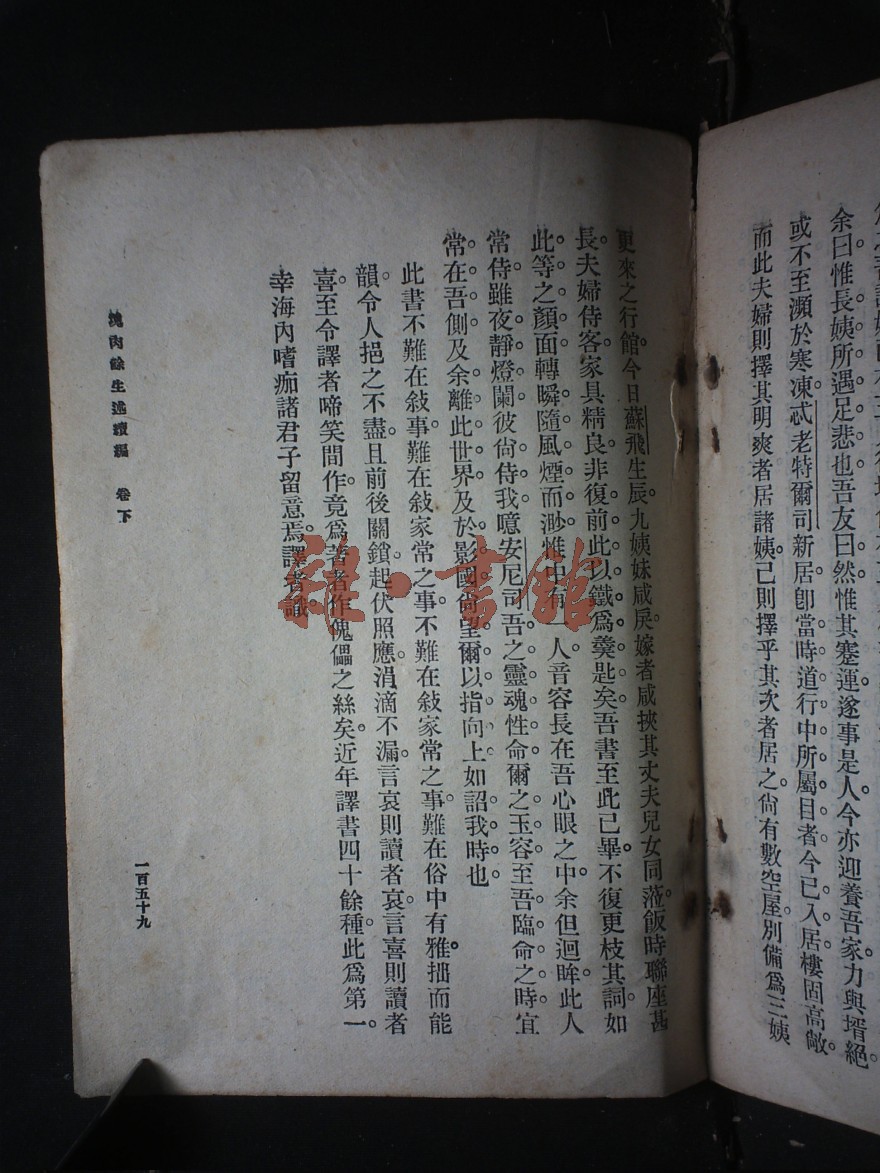 余曰惟長姨所遇足悲也吾友曰然惟其蹇運遂事是人今亦迎養吾家力與壻絕。
或不至瀕於寒凍。忒老特爾司新居卽當時道行中所屬目者今已入居樓固高敞。
而此夫婦則擇其明爽者居諸姨。己則擇乎其次者居之。尙有數空屋別備爲三姨
更來之行館。今日蘇飛生辰。九姨妹咸戾。嫁者咸挾其丈夫兒女同蒞。飯時聯座甚
長。夫婦侍客家具精良。非復前此以鐵爲羹匙矣。吾書至此已畢。不復更枝其詞。如
此等之顏面轉瞬隨風煙而渺。惟中有一人音容長在吾心眼之中。余但迴眸此人
常侍。雖夜靜燈闌彼尙侍我。噫安尼司吾之靈魂性命。爾之玉容至吾臨命之時宜
常在吾側。及余離此世界及於影國。尙望爾以指向上如詔我時也。
此書不難在敍事。難在敍家常之事。不難在敍家常之事。難在俗中有雅。拙而能
韻。令人挹之不盡。且前後關鎖。起伏照應。涓滴不漏。言哀則讀者哀。言喜則讀者
喜。至令譯者啼笑間作。竟爲著者作傀儡之絲矣。近年譯書四十餘種。此爲第一。
幸海內嗜痂諸君子留意焉。譯者識。
塊肉餘生述續編 卷下
一百五十九
雜·書館